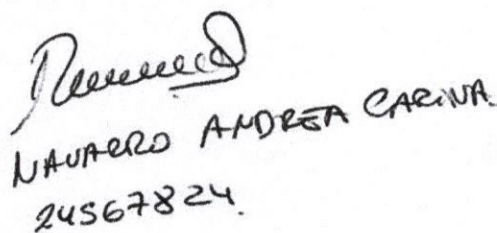 NAVARRO ANDREA CARINA
24567824.